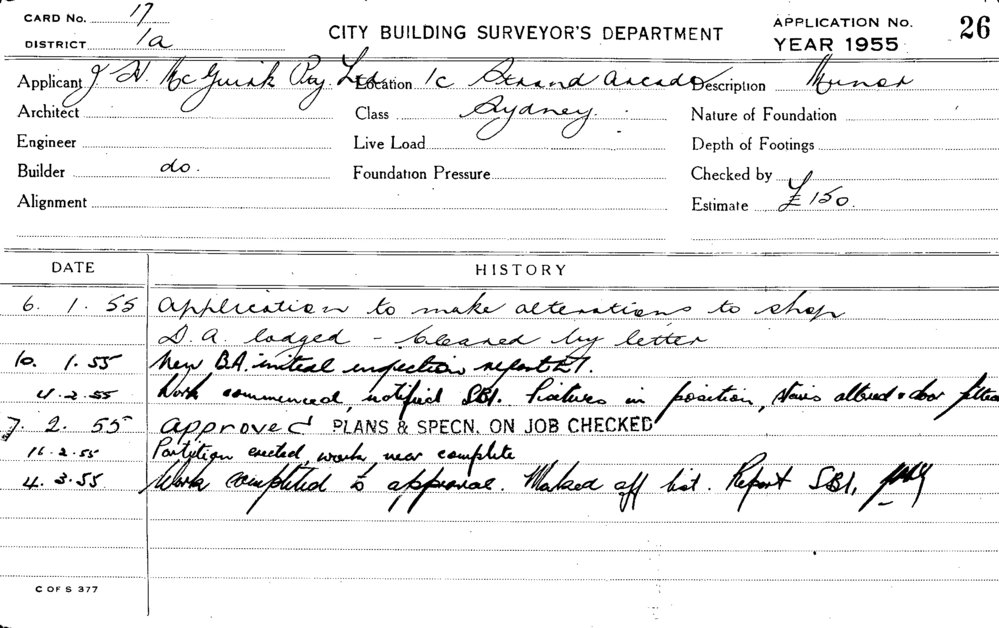 CARD No. 17
DISTRICT 1a
CITY BUILDING SURVEYOR'S DEPARTMENT
APPLICATION No.
YEAR 1955
26
Applicant J H. McGuirk Pty. Ltd Location 1c Strand Arcade Description Minor
Architect Class Sydney. Nature of Foundation
Engineer Live Load Depth of Footings
Builder do. Foundation Pressure Checked by
Alignment Estimate £150.
DATE HISTORY
6. 1. 55 Application to make alterations to shop
D.A. lodged - cleared by letter
10. 1.55 New B.A. initial inspection report
4.2.55 Work commenced, notified SBI. Fixtures in position, stairs altered & door
7 2. 55 approved PLANS & SPECN. ON JOB CHECKED
16.2.55 Partition erected, work near complete
4. 3.55 Work completed to approval. Marked off list. Report SBI,
C OF S 377